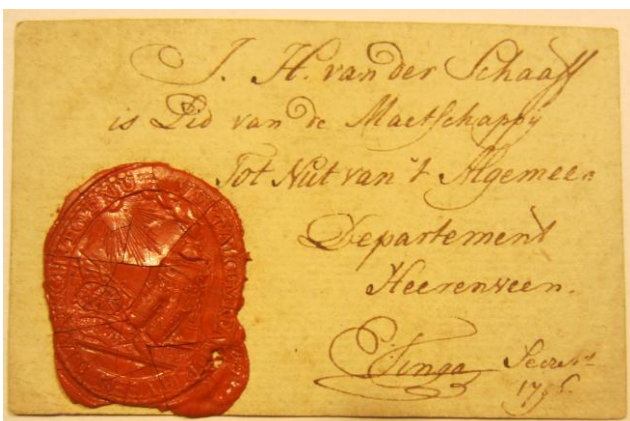 J. H. van der Schaaff
is Lid van de Maetschappy
Tot Nut van 't Algemeen
Departement
Heerenveen.
Tinga Secret.